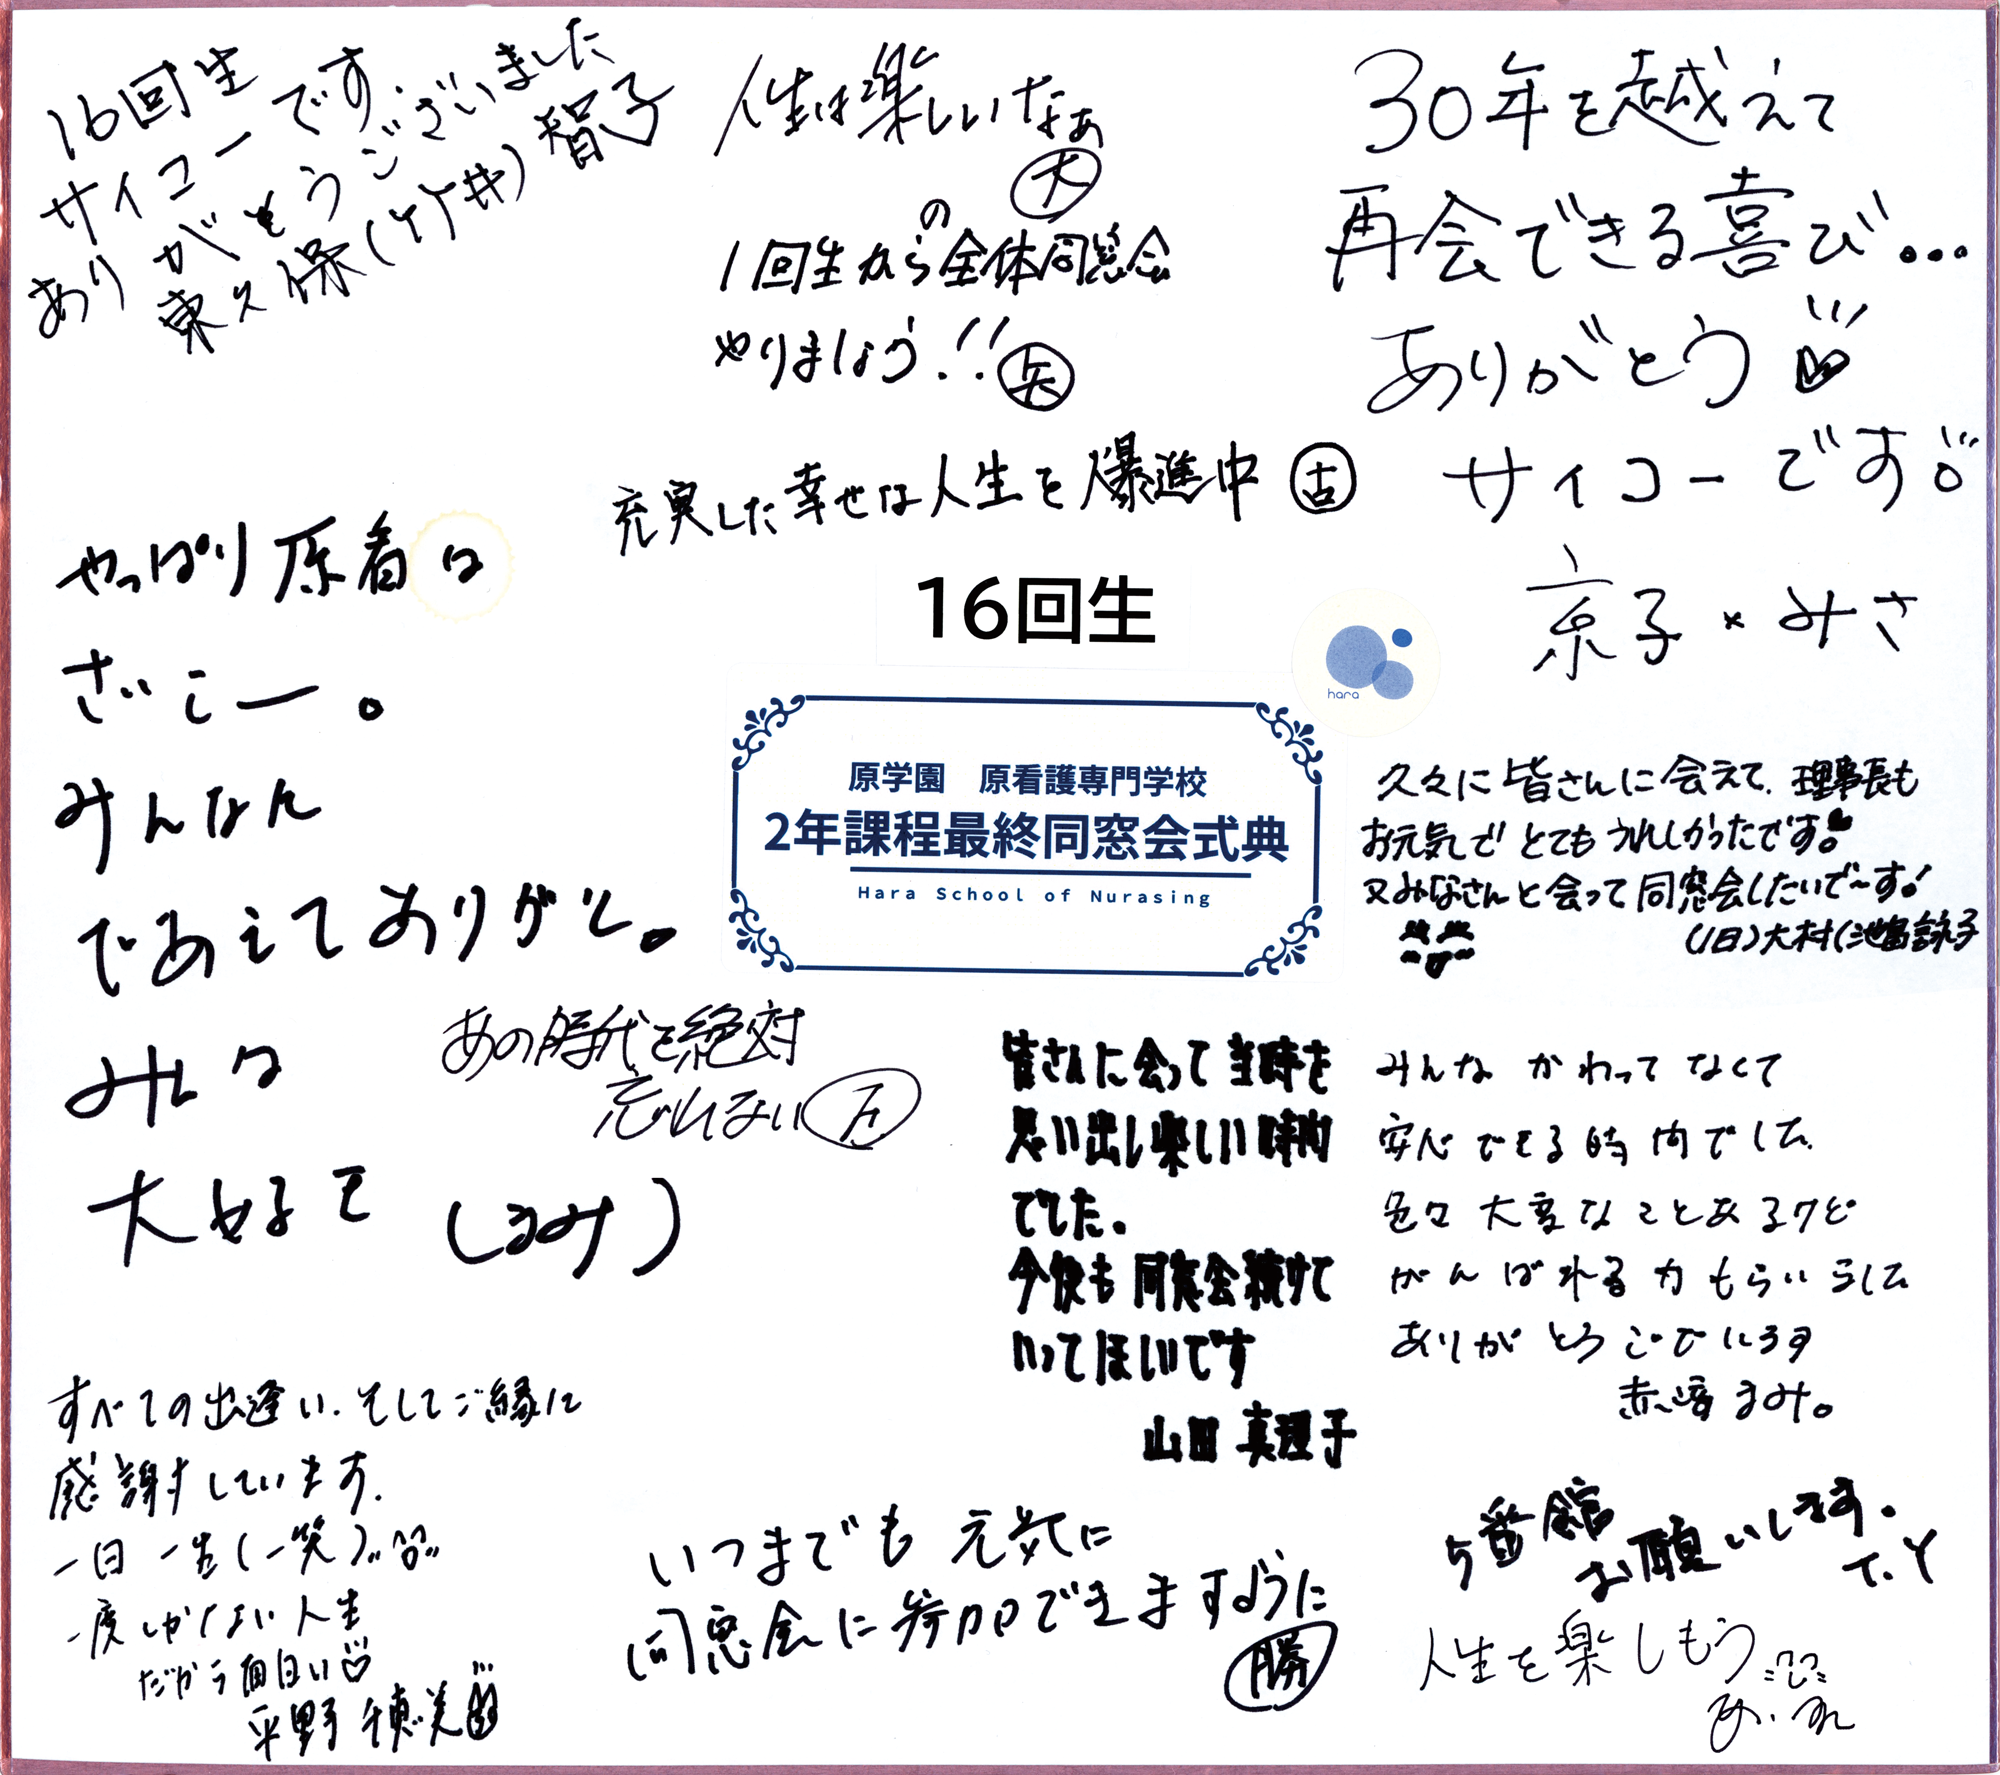 16回生
サイコーです.
ありがとうございました
東久保(竹井)智子
人生は楽しいなぁ
大
1回生からの全体同窓会
やりましょう!!
矢
30年を越えて
再会できる喜び…
ありがとう
サイコーです
京子×みさ
充実した幸せな人生を爆進中 古
やっぱり原看は
さいこー。
みんなん
であえてありがと。
みんな
大好き
(るみ)
16回生
hara
原学園 原看護専門学校
2年課程最終同窓会式典
Hara School of Nurasing
久々に皆さんに会えて、理事長も
お元気でとてもうれしかったです!
又みなさんと会って同窓会したいで~す!
(旧)大村(池畠詠子
あの時代を絶対
忘れない
皆さんに会って当時を
思い出し楽しい時間
でした。
今後も同窓会続けて
いってほしいです
山田 真理子
みんな かわってなくて
安心できる時間でした.
色々大変なことあるけど
がんばれる力もらいました
ありがとうございます
赤崎るみ。
すべての出逢い、そしてご縁に
感謝しています.
一日一生(一笑)
一度しかない人生
だから面白い
平野千恵美
いつまでも元気に
同窓会に参加できますように
勝
5番館
お願いします.
T.Y
人生を楽しもう